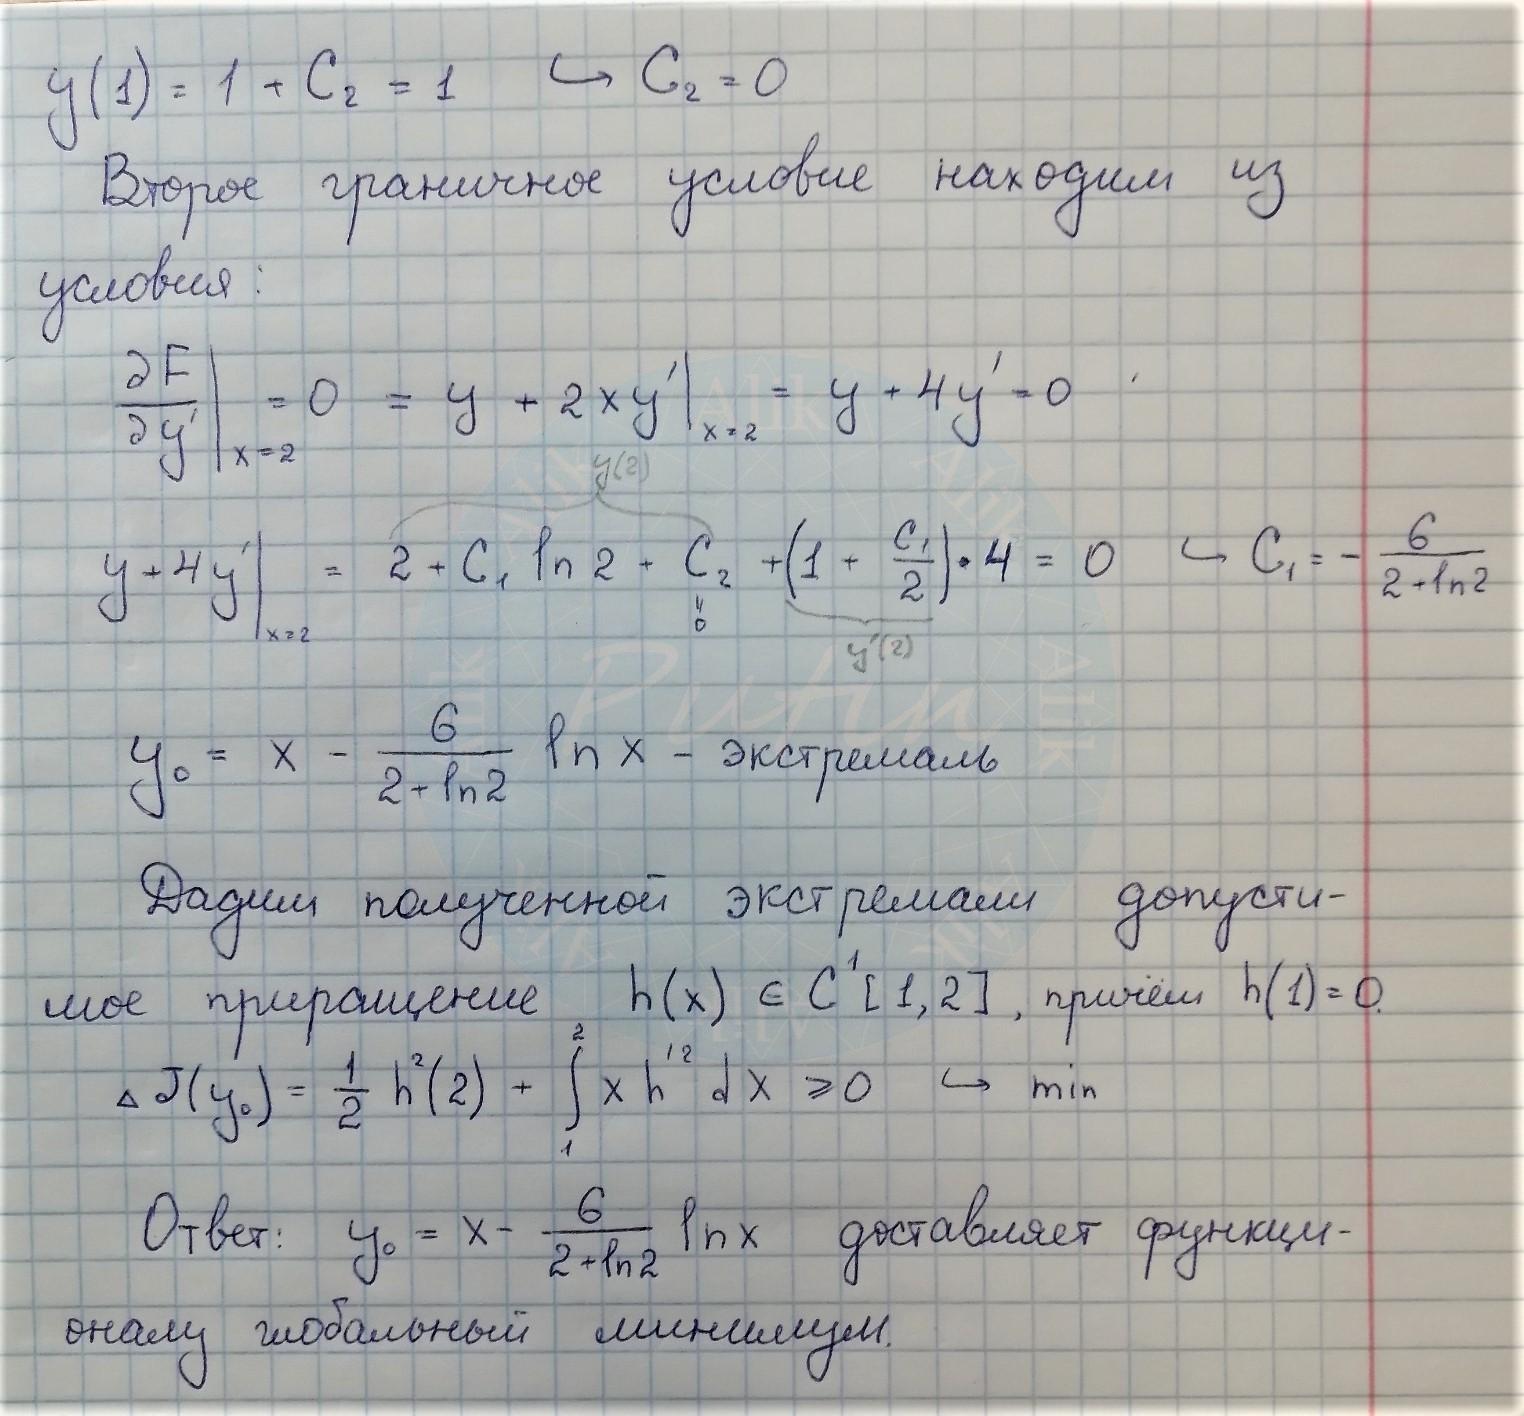 y(1) = 1 + C₂ = 1 ↪ C₂ = 0
Второе граничное условие находим из
условия:
∂F/∂y' |ₓ₌₂ = 0 = y + 2xy' |ₓ₌₂ = y + 4y' = 0
y(2)
y + 4y' |ₓ₌₂ = 2 + C₁ ln 2 + C₂ + (1 + C₁/2) · 4 = 0 ↪ C₁ = - 6/(2 + ln 2)
0
y'(2)
y₀ = x - 6/(2 + ln 2) ln x - экстремаль
Дадим полученной экстремали допусти-
мое приращение h(x) ∈ C¹[1,2], причём h(1) = 0.
△J(y₀) = 1/2 h²(2) + ∫₁² x h'² dx ⩾ 0 ↪ min
Ответ: y₀ = x - 6/(2 + ln 2) ln x доставляет функци-
оналу глобальный минимум.